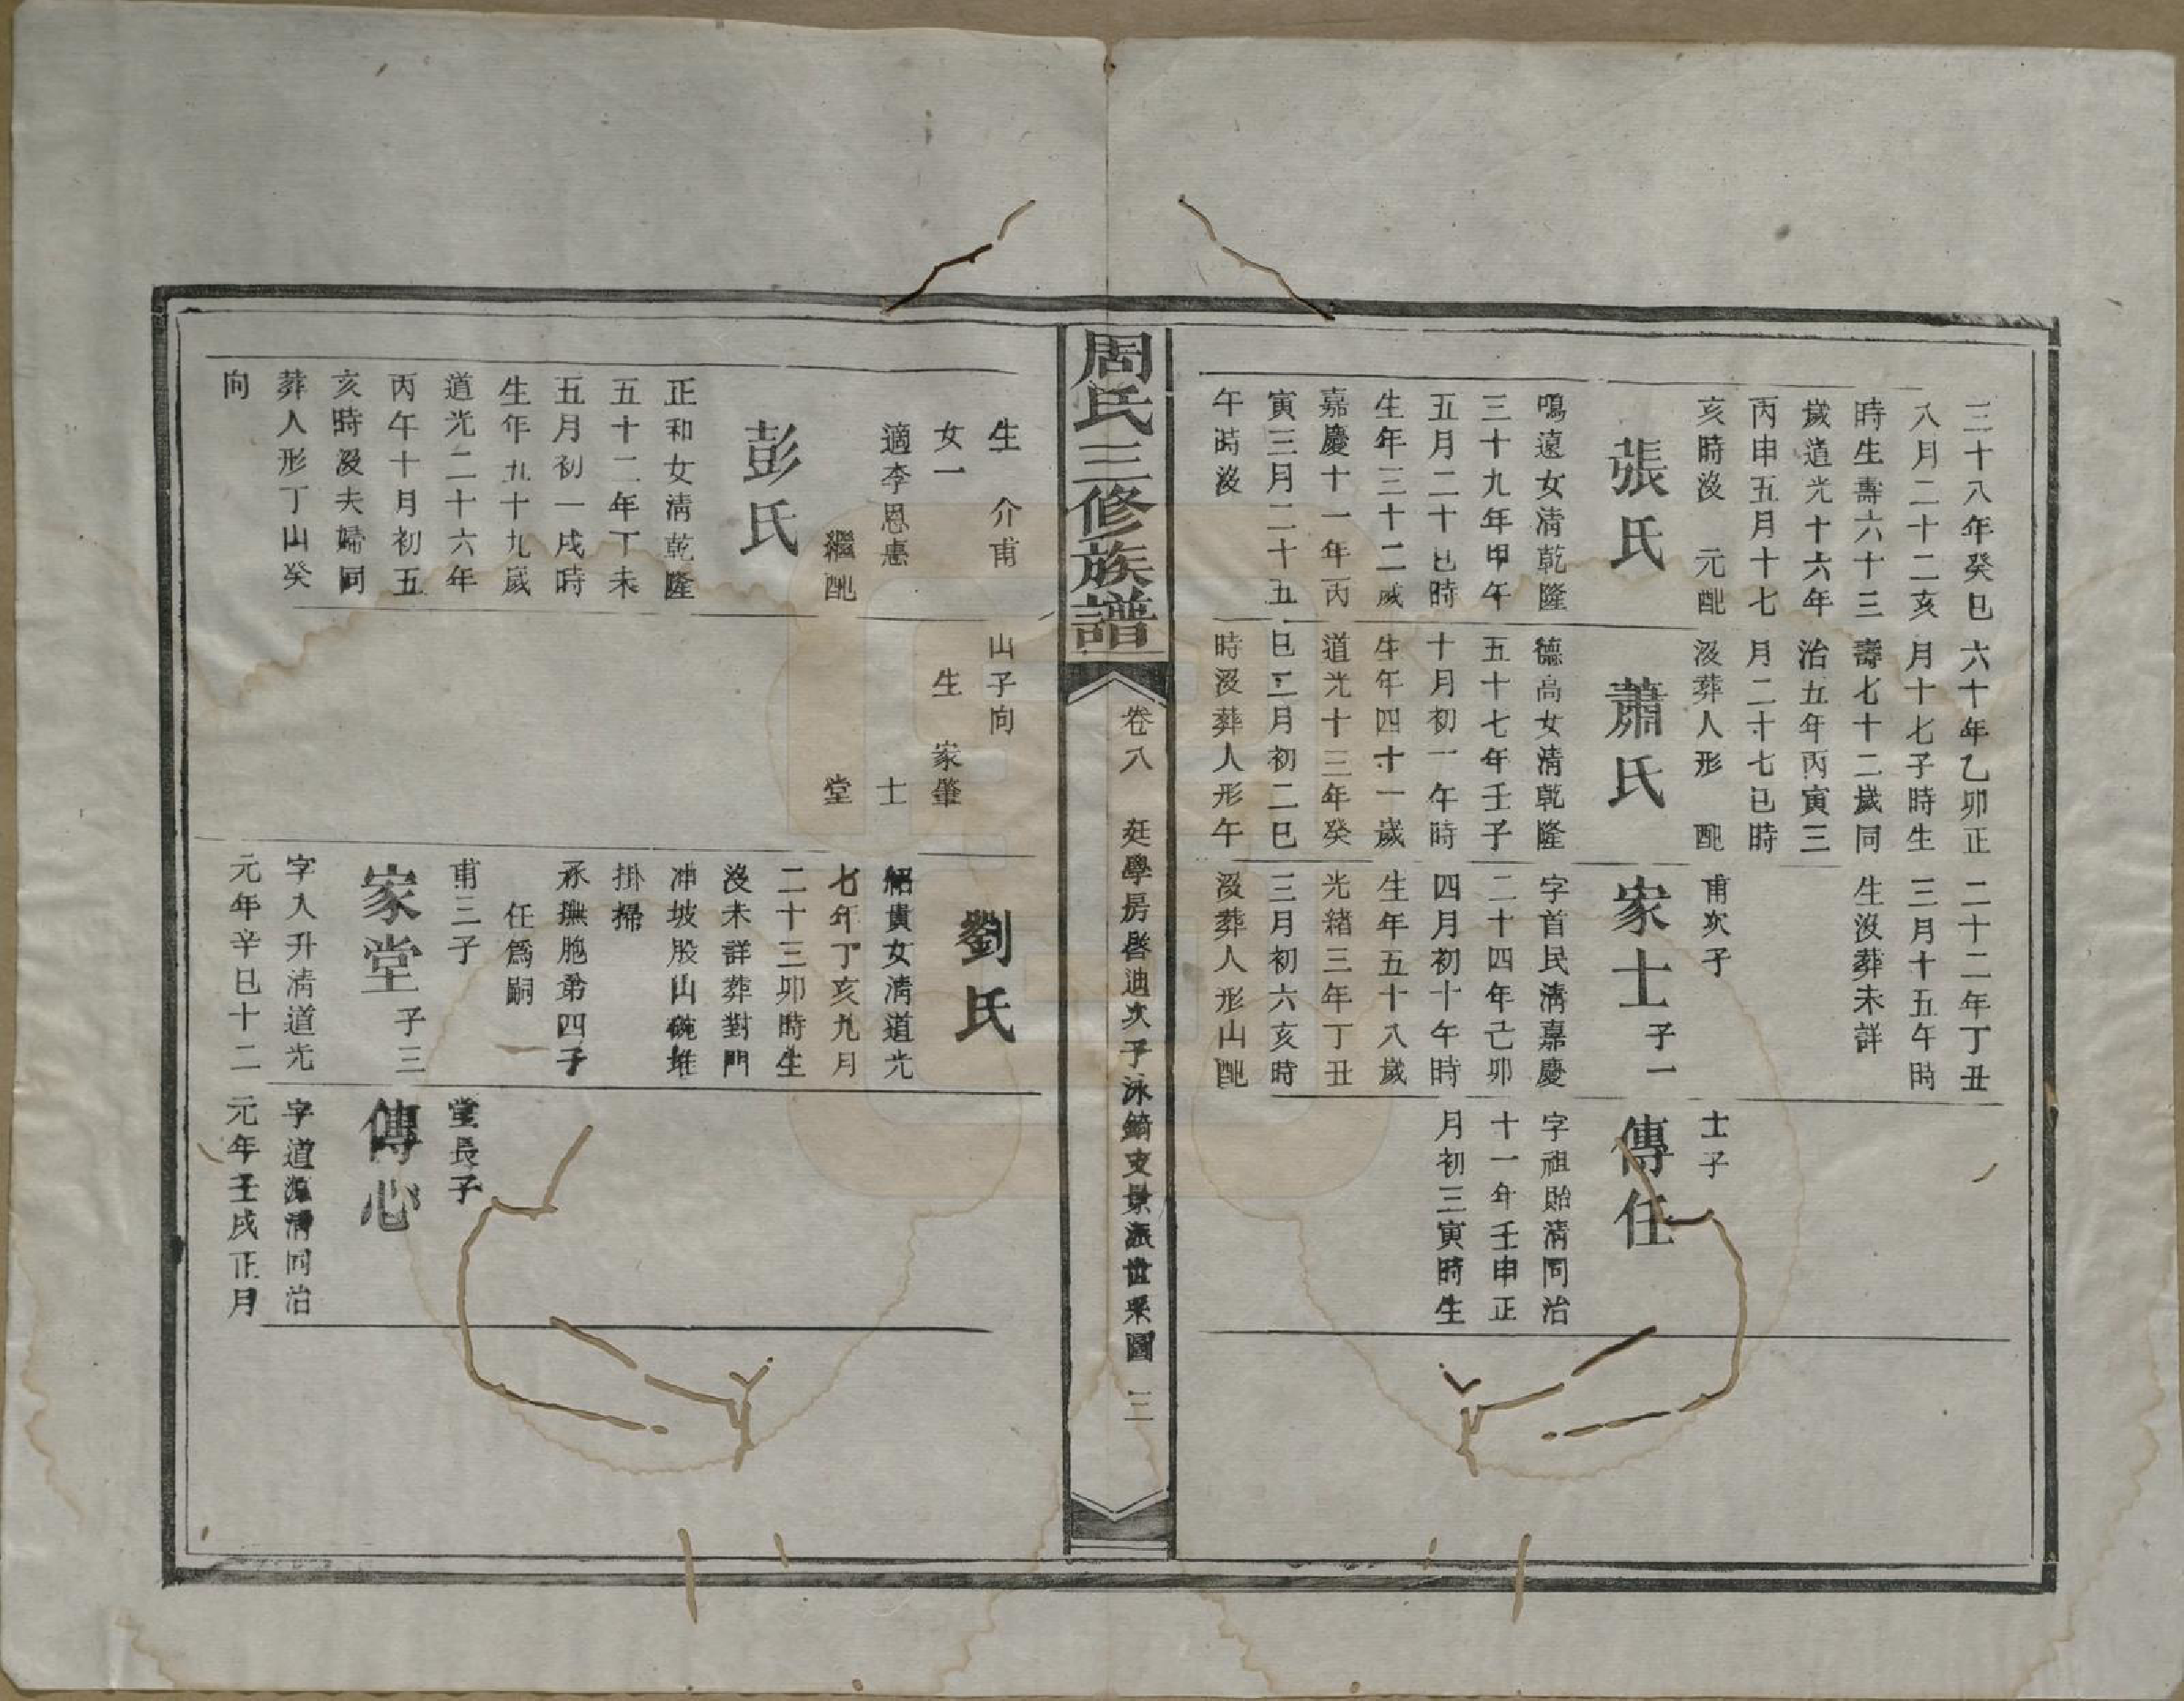 三十八年癸巳
八月二十二亥
時生壽六十三
歲道光十六年
丙申五月十七
亥時沒 元配
張氏
鳴遠女清乾隆
三十九年甲午
五月二十巳時
生年三十二歲
嘉慶十一年丙
寅三月二十五
午時沒
六十年乙卯正
月十七子時生
壽七十二歲同
治五年丙寅三
月二十七巳時
沒葬人形 配
蕭氏
德高女清乾隆
五十七年壬子
十月初一午時
生年四十一歲
道光十三年癸
巳二月初二巳
時沒葬人形午
二十二年丁丑
三月十五午時
生沒葬未詳
甫次子
家士 子一
字首民清嘉慶
二十四年己卯
四月初十午時
生年五十八歲
光緒三年丁丑
三月初六亥時
沒葬人形山配
士子
傳任
字祖貽清同治
十一年壬申正
月初三寅時生
周氏三修族譜
卷八 廷學房啓迪次子泳錡支景派世系圖 三
生 介甫
女一
適李恩惠
繼配
彭氏
正和女清乾隆
五十二年丁未
五月初一戌時
生年五十九歲
道光二十六年
丙午十月初五
亥時沒夫婦同
葬人形丁山癸
向
山子向
生 家肇
士
堂
劉氏
紹貴女清道光
七年丁亥九月
二十三卯時生
沒未詳葬對門
冲坡股山碗堆
掛掃
承撫胞弟四子
任爲嗣
甫三子
家堂 子三
字入升清道光
元年辛巳十二
堂長子
傳心
字道源清同治
元年壬戌正月